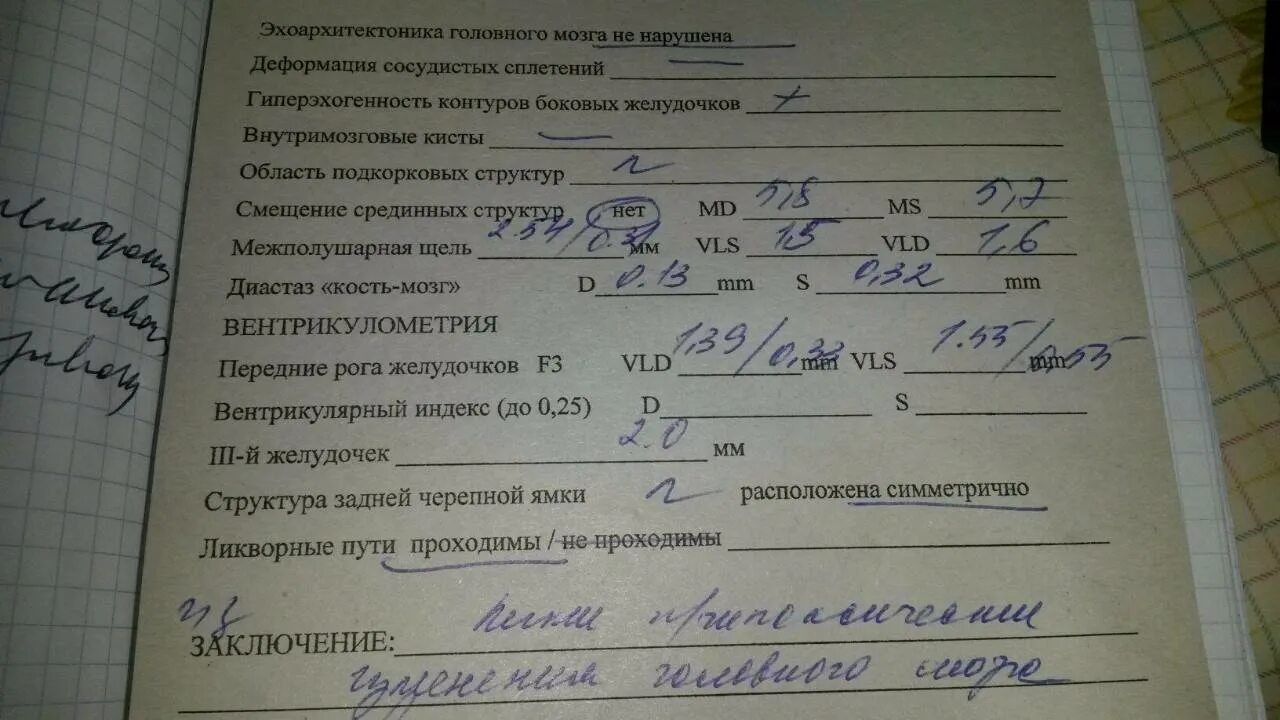 Эхоархитектоника головного мозга не нарушена
Деформация сосудистых сплетений —
Гиперэхогенность контуров боковых желудочков +
Внутримозговые кисты —
Область подкорковых структур
Смещение срединных структур нет MD 5,8 MS 5,7
Межполушарная щель 2.54/0.31 мм VLS 15 VLD 1,6
Диастаз «кость-мозг» D 0.13 mm S 0,32 mm
ВЕНТРИКУЛОМЕТРИЯ
Передние рога желудочков F3 VLD 1,39/0,33 mm VLS 1.55/0,55 mm
Вентрикулярный индекс (до 0,25) D S
III-й желудочек 2.0 мм
Структура задней черепной ямки расположена симметрично
Ликворные пути проходимы / не проходимы
ЗАКЛЮЧЕНИЕ:
изменения головного мозга